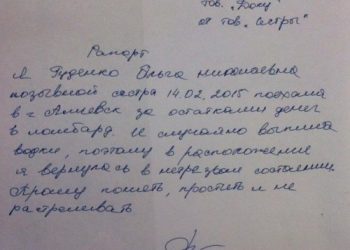 тов. „Доку"
от тов. „Сестры"
Рапорт
Я Руденко Ольга Николаевна
позывной сестра 14.02.2015 поехала
в г Алчевск за остатками денег
в ломбард. И случайно выпила
водки, поэтому в расположение
я вернулась в нетрезвом состоянии
Прошу понять, простить и не
расстреливать